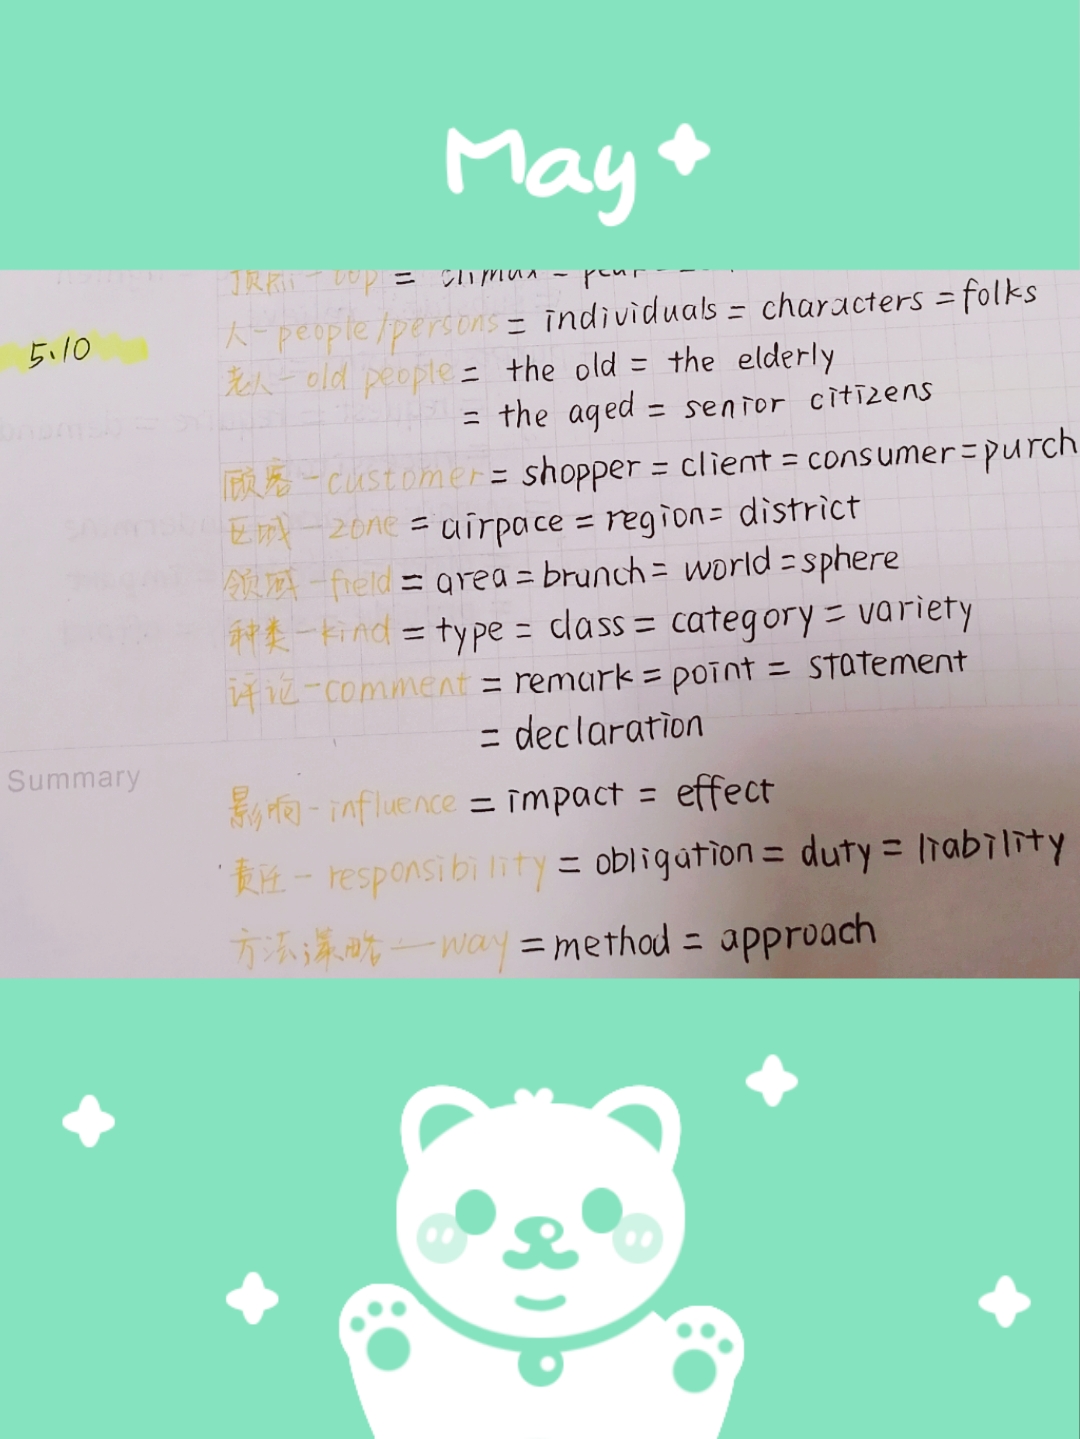 May
顶点-top = climax =
人-people/persons = individuals = characters = folks
5.10
老人-old people = the old = the elderly
= the aged = senior citizens
顾客-customer = shopper = client = consumer = purch
区域-zone = airpace = region = district
领域-field = area = brunch = world = sphere
种类-kind = type = class = category = variety
评论-comment = remark = point = statement
= declaration
Summary
影响-influence = impact = effect
责任-responsibility = obligation = duty = liability
方法策略-way = method = approach